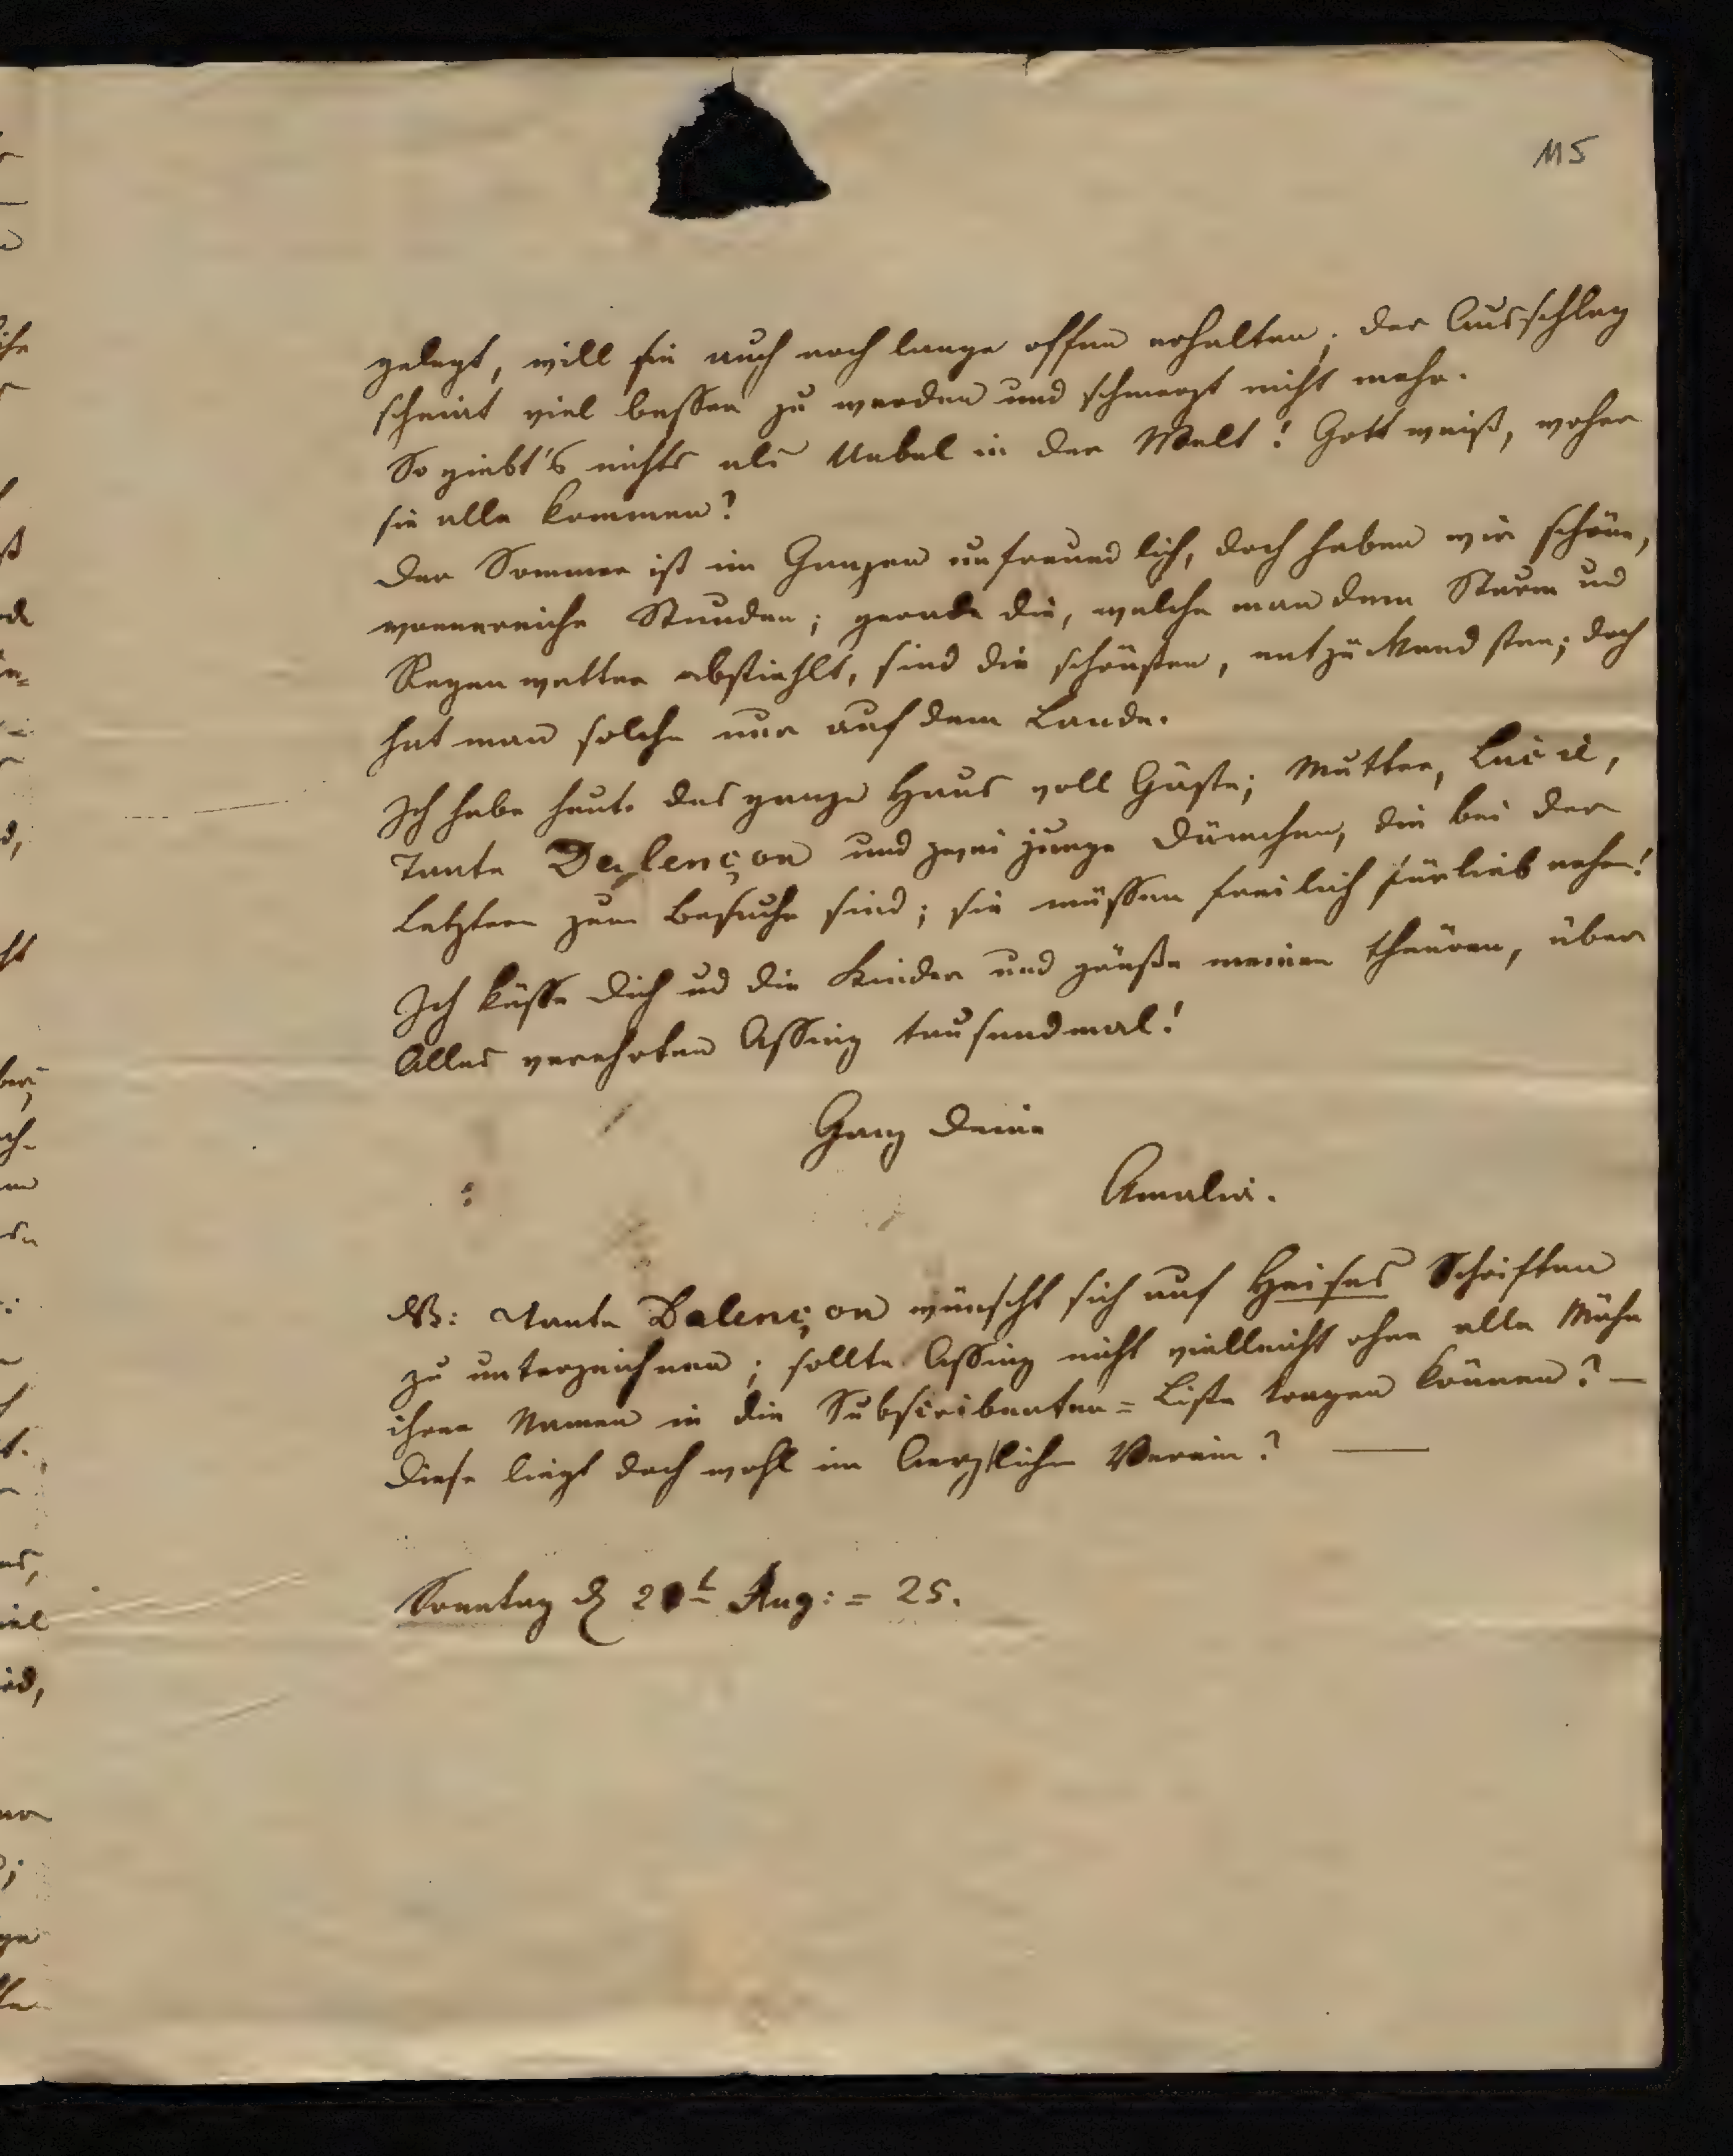 115
gelegt, will sie auch noch lange offen erhalten; der Ausschlag
scheint viel besser zu werden und schmerzt nicht mehr.
So giebt's nichts als Uebel in der Welt! Gott weiß, woher
sie alle kommen?
Der Sommer ist im Ganzen unfreundlich, doch haben wir schöne,
wonnereiche Stunden; gerade die, welche man dem Sturm ud
Regenwetter abstiehlt, sind die schönsten, entzückendsten; doch
hat man solche nur auf dem Lande.
Ich habe heute das ganze Haus voll Gäste; Mutter, Lucie,
Tante Dalençon und zwei junge Dämchen, die bei der
Letztern zum Besuche sind; sie müssen freilich fürlieb nehm!
Ich küsse Dich ud die Kinder und grüße meinen theuren, über
Alles verehrten Assing tausendmal!
Ganz Deine
Amalia.
NB: Tante Dalençon wünscht sich auf Heises Schriften
zu unterzeichnen; sollte Assing nicht vielleicht ohne alle Mühe
ihren Namen in die Subscribenten=Liste tragen können? —
Diese liegt doch wohl im Aerztlichen Verein? —
Sonntag d 21t Aug: = 25.